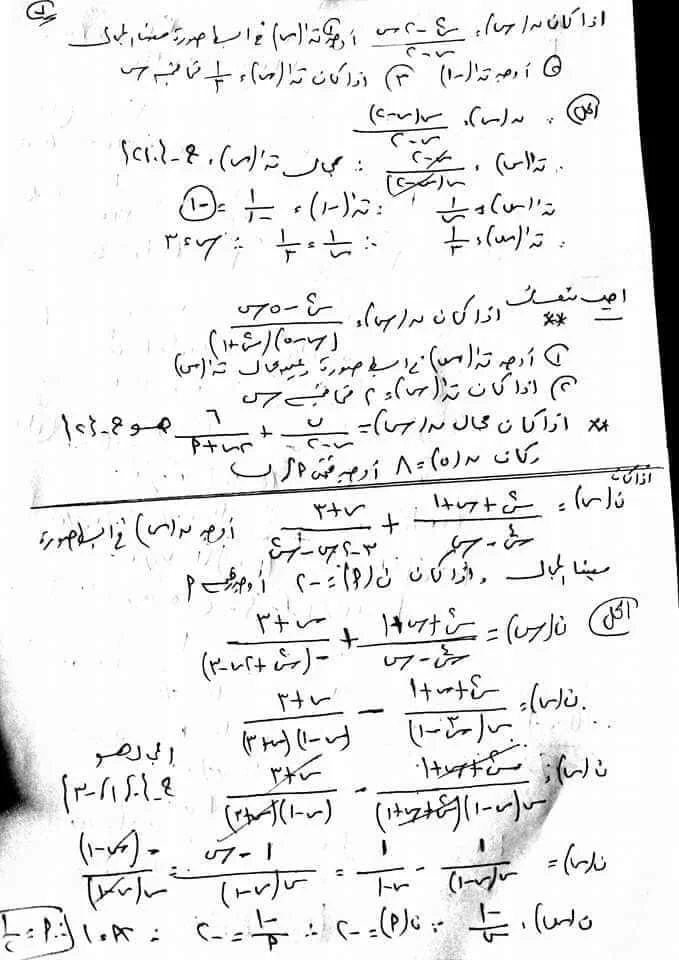 اذا كان ن(س) = (س² - ٢س)/(س - ٢) أوجد ① ن⁻¹(س) في ابسط صورة مبينا المجال
② أوجد ن⁻¹(-١) ③ اذا كان ن⁻¹(س) = ١/٣ فما قيمة س
الحل ∵ ن(س) = س(س - ٢)/(س - ٢)
∴ ن⁻¹(س) = (س - ٢)/(س(س - ٢)) ∴ مجال ن⁻¹(س) = ح - {٠، ٢}
ن⁻¹(س) = ١/س ∴ ن⁻¹(-١) = ١/-١ = -١
∵ ن⁻¹(س) = ١/٣ ∴ ١/س = ١/٣ ∴ س = ٣
اجب بنفسك
** اذا كان ن(س) = (س² - ٥س)/((س - ٥)(س² + ١))
① أوجد ن⁻¹(س) في ابسط صورة وعين مجال ن⁻¹(س)
② اذا كان ن⁻¹(س) = ٢ فما قيمة س
** اذا كان مجال ن(س) = ب/(س - ٢) + ٦/(س٢ + م) هو ح - {٢}
وكان ن(٥) = ٨ أوجد قيمتي م، ب
اذا كان
ن(س) = (س² + س + ١)/(س⁴ - س) + (س + ٣)/(٣ - ٢س - س²) أوجد ن(س) في ابسط صورة
مبينا المجال واذا كان ن(م) = -٢ أوجد قيمة م
الحل ن(س) = (س² + س + ١)/(س⁴ - س) + (س + ٣)/-(س² + ٢س - ٣)
ن(س) = (س² + س + ١)/(س(س³ - ١)) - (س + ٣)/((س - ١)(س + ٣))
ن(س) = (س² + س + ١)/(س(س - ١)(س² + س + ١)) - (س + ٣)/((س - ١)(س + ٣)) المجال هو ح - {٠، ١، -٣}
ن(س) = ١/(س(س - ١)) - ١/(س - ١) = (١ - س)/(س(س - ١)) = -(س - ١)/(س(س - ١))
ن(س) = -١/س ∵ ن(م) = -٢ ∴ -١/م = -٢ ∴ م = ١/٢